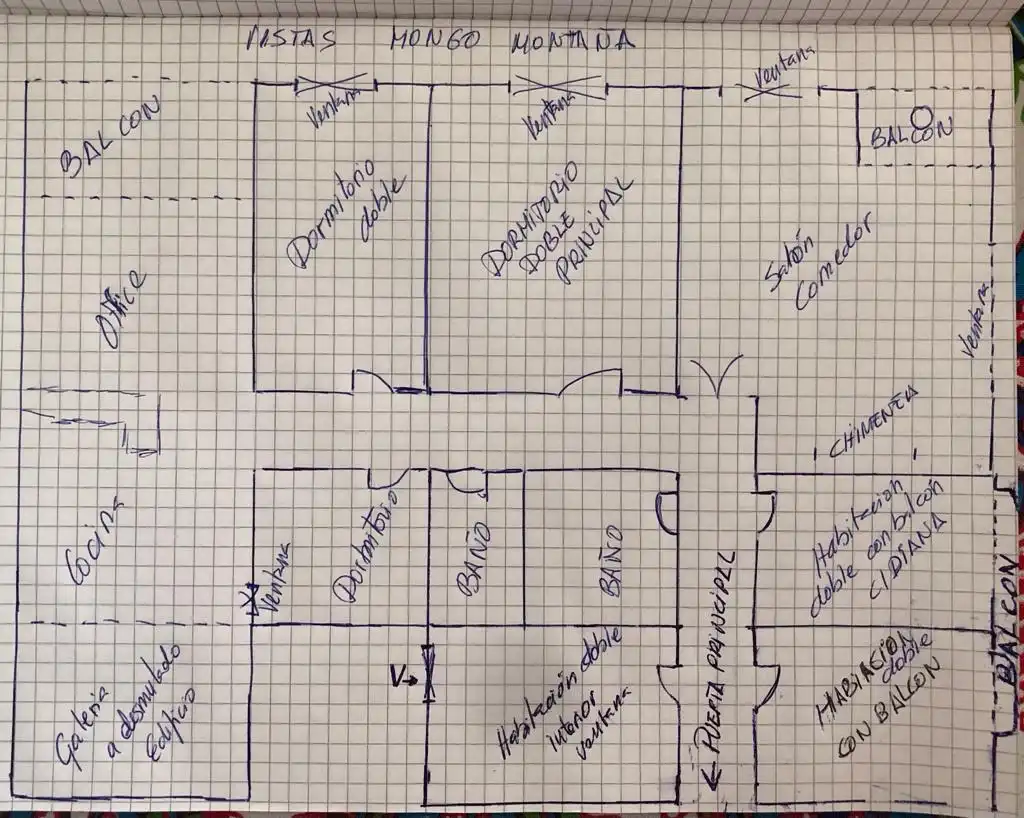 VISTAS MONGO MONTAÑA
BALCON
Ventana
Ventana
Ventana
BALCON
Dormitorio
doble
DORMITORIO
DOBLE
PRINCIPAL
Salón
Comedor
Office
Ventana
CHIMENEA
Cocina
Ventana
Dormitorio
BAÑO
BAÑO
Habitacion
doble con balcon
C/DIANA
BALCON
Galeria
a desmulado
Edificio
V→
Habitación doble
interior
ventana
← PUERTA PRINCIPAL
HABIACION
doble
CON BALCON